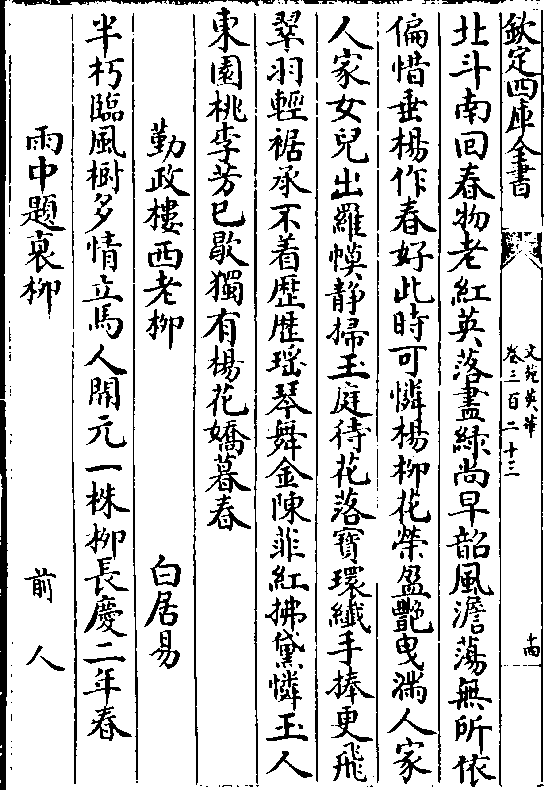 欽定四庫全書
文苑英華
卷三百二十三
十四
北斗南回春物老紅英落盡緑尚早韶風澹蕩無所依
偏惜垂楊作春好此時可憐楊柳花縈盈艷曳滿人家
人家女兒出羅幙静掃玉庭待花落寳環纎手捧更飛
翠羽輕裾承不着歴歴瑶琴舞金陳菲紅拂黛憐玉人
東園桃李芳已歇獨有楊花嬌暮春
勤政樓西老柳 白居易
半朽臨風樹多情立馬人開元一株柳長慶二年春
雨中題衰柳 前人